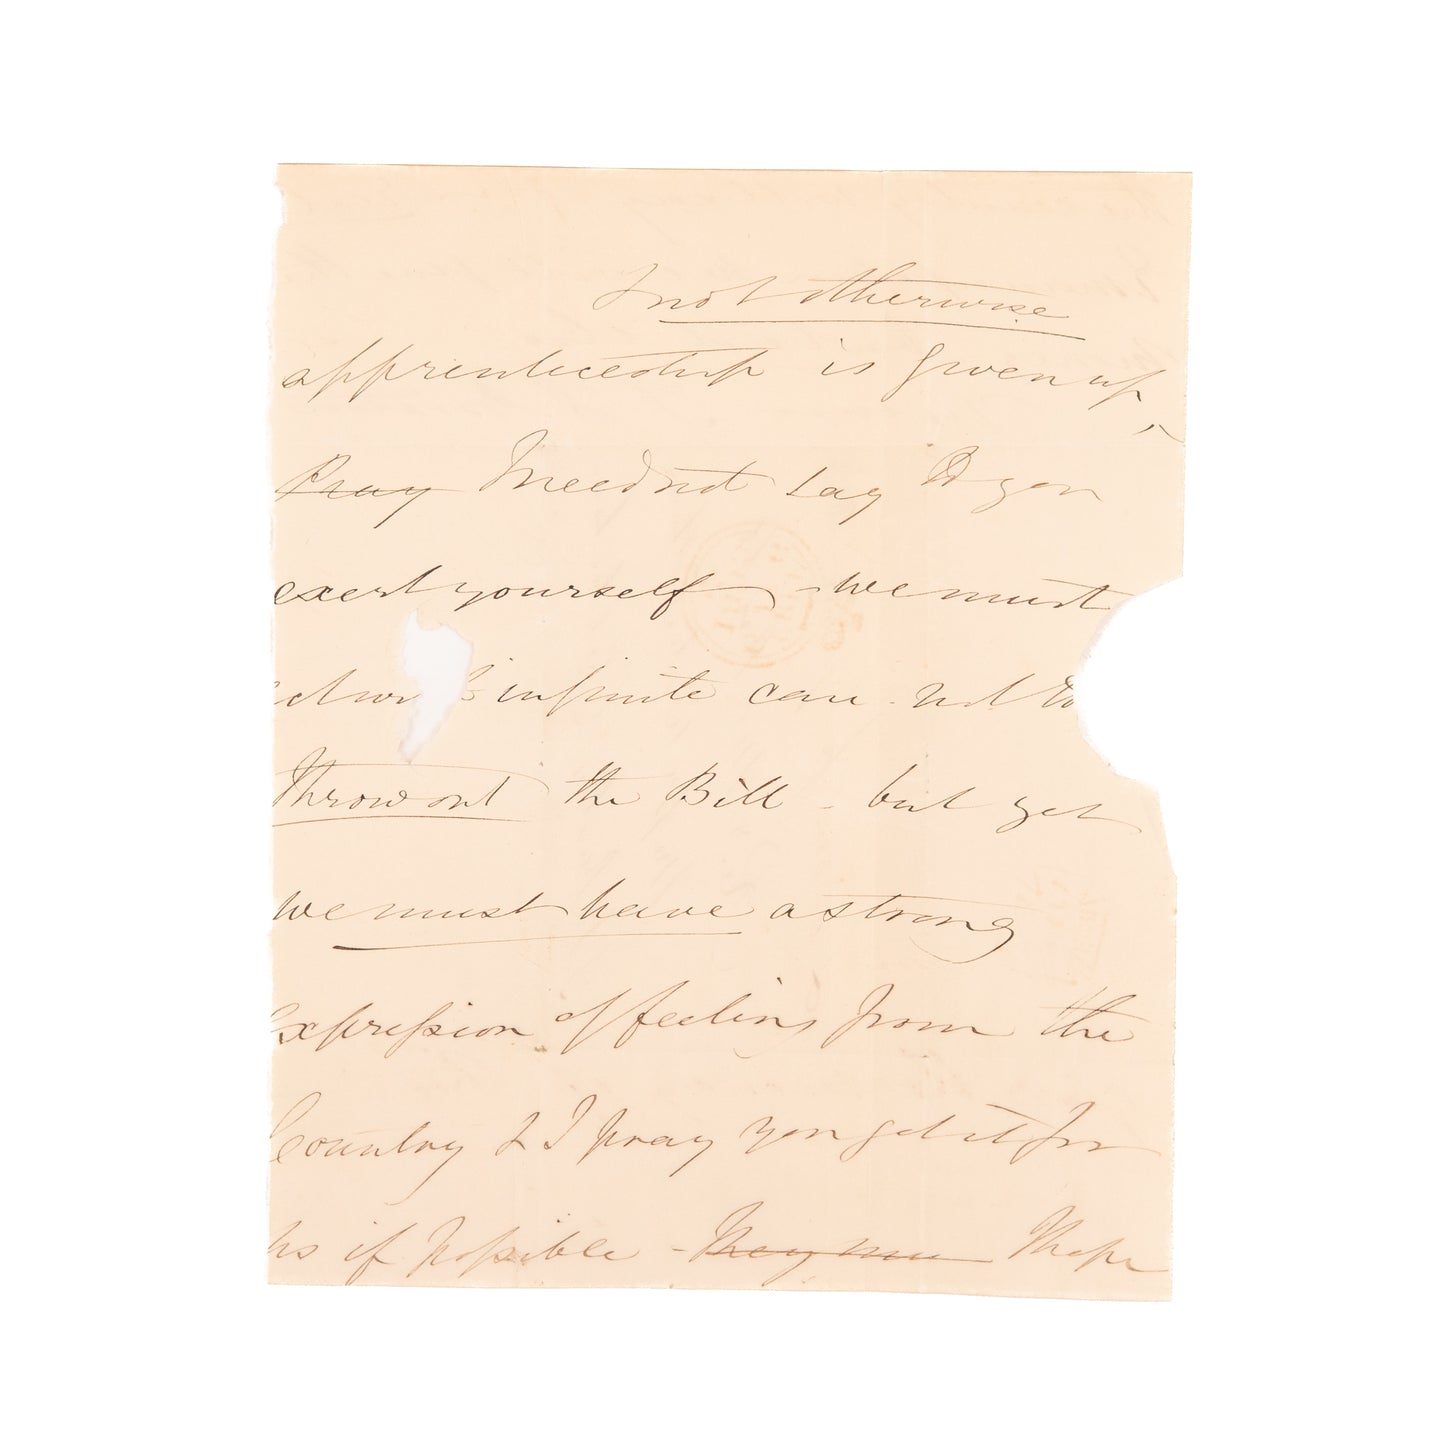 & not otherwise
apprenticeship is given up,
Pray I need not say to you
exert yourself - we must
act with infinite care - not to
Throw out the Bill - but yet
we must have a strong
Expression of feeling from the
Country & I pray you get it for
us if possible - They mu I hope